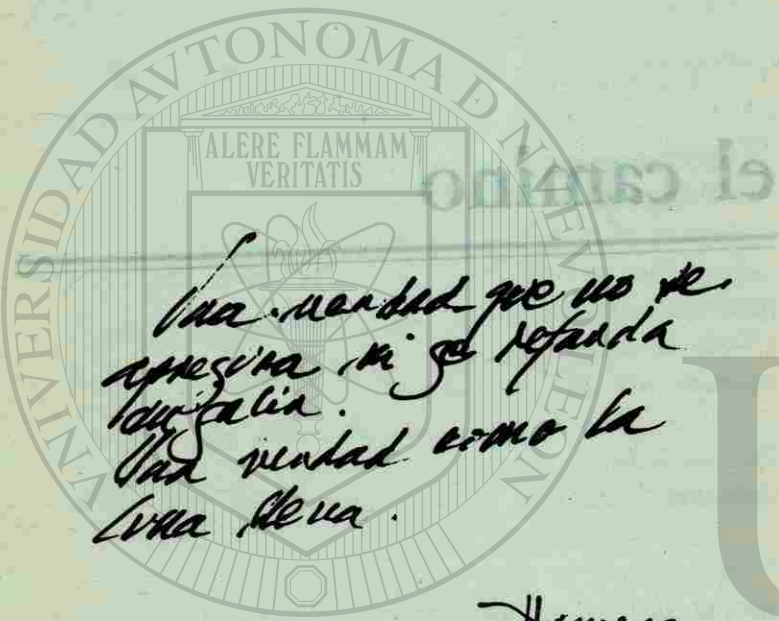 UNIVERSIDAD AUTONOMA DE NUEVO LEON
ALERE FLAMMAM
VERITATIS
el camino
Una verdad que no se
apresura ni se retarda
Una verdad como la
luna llena.